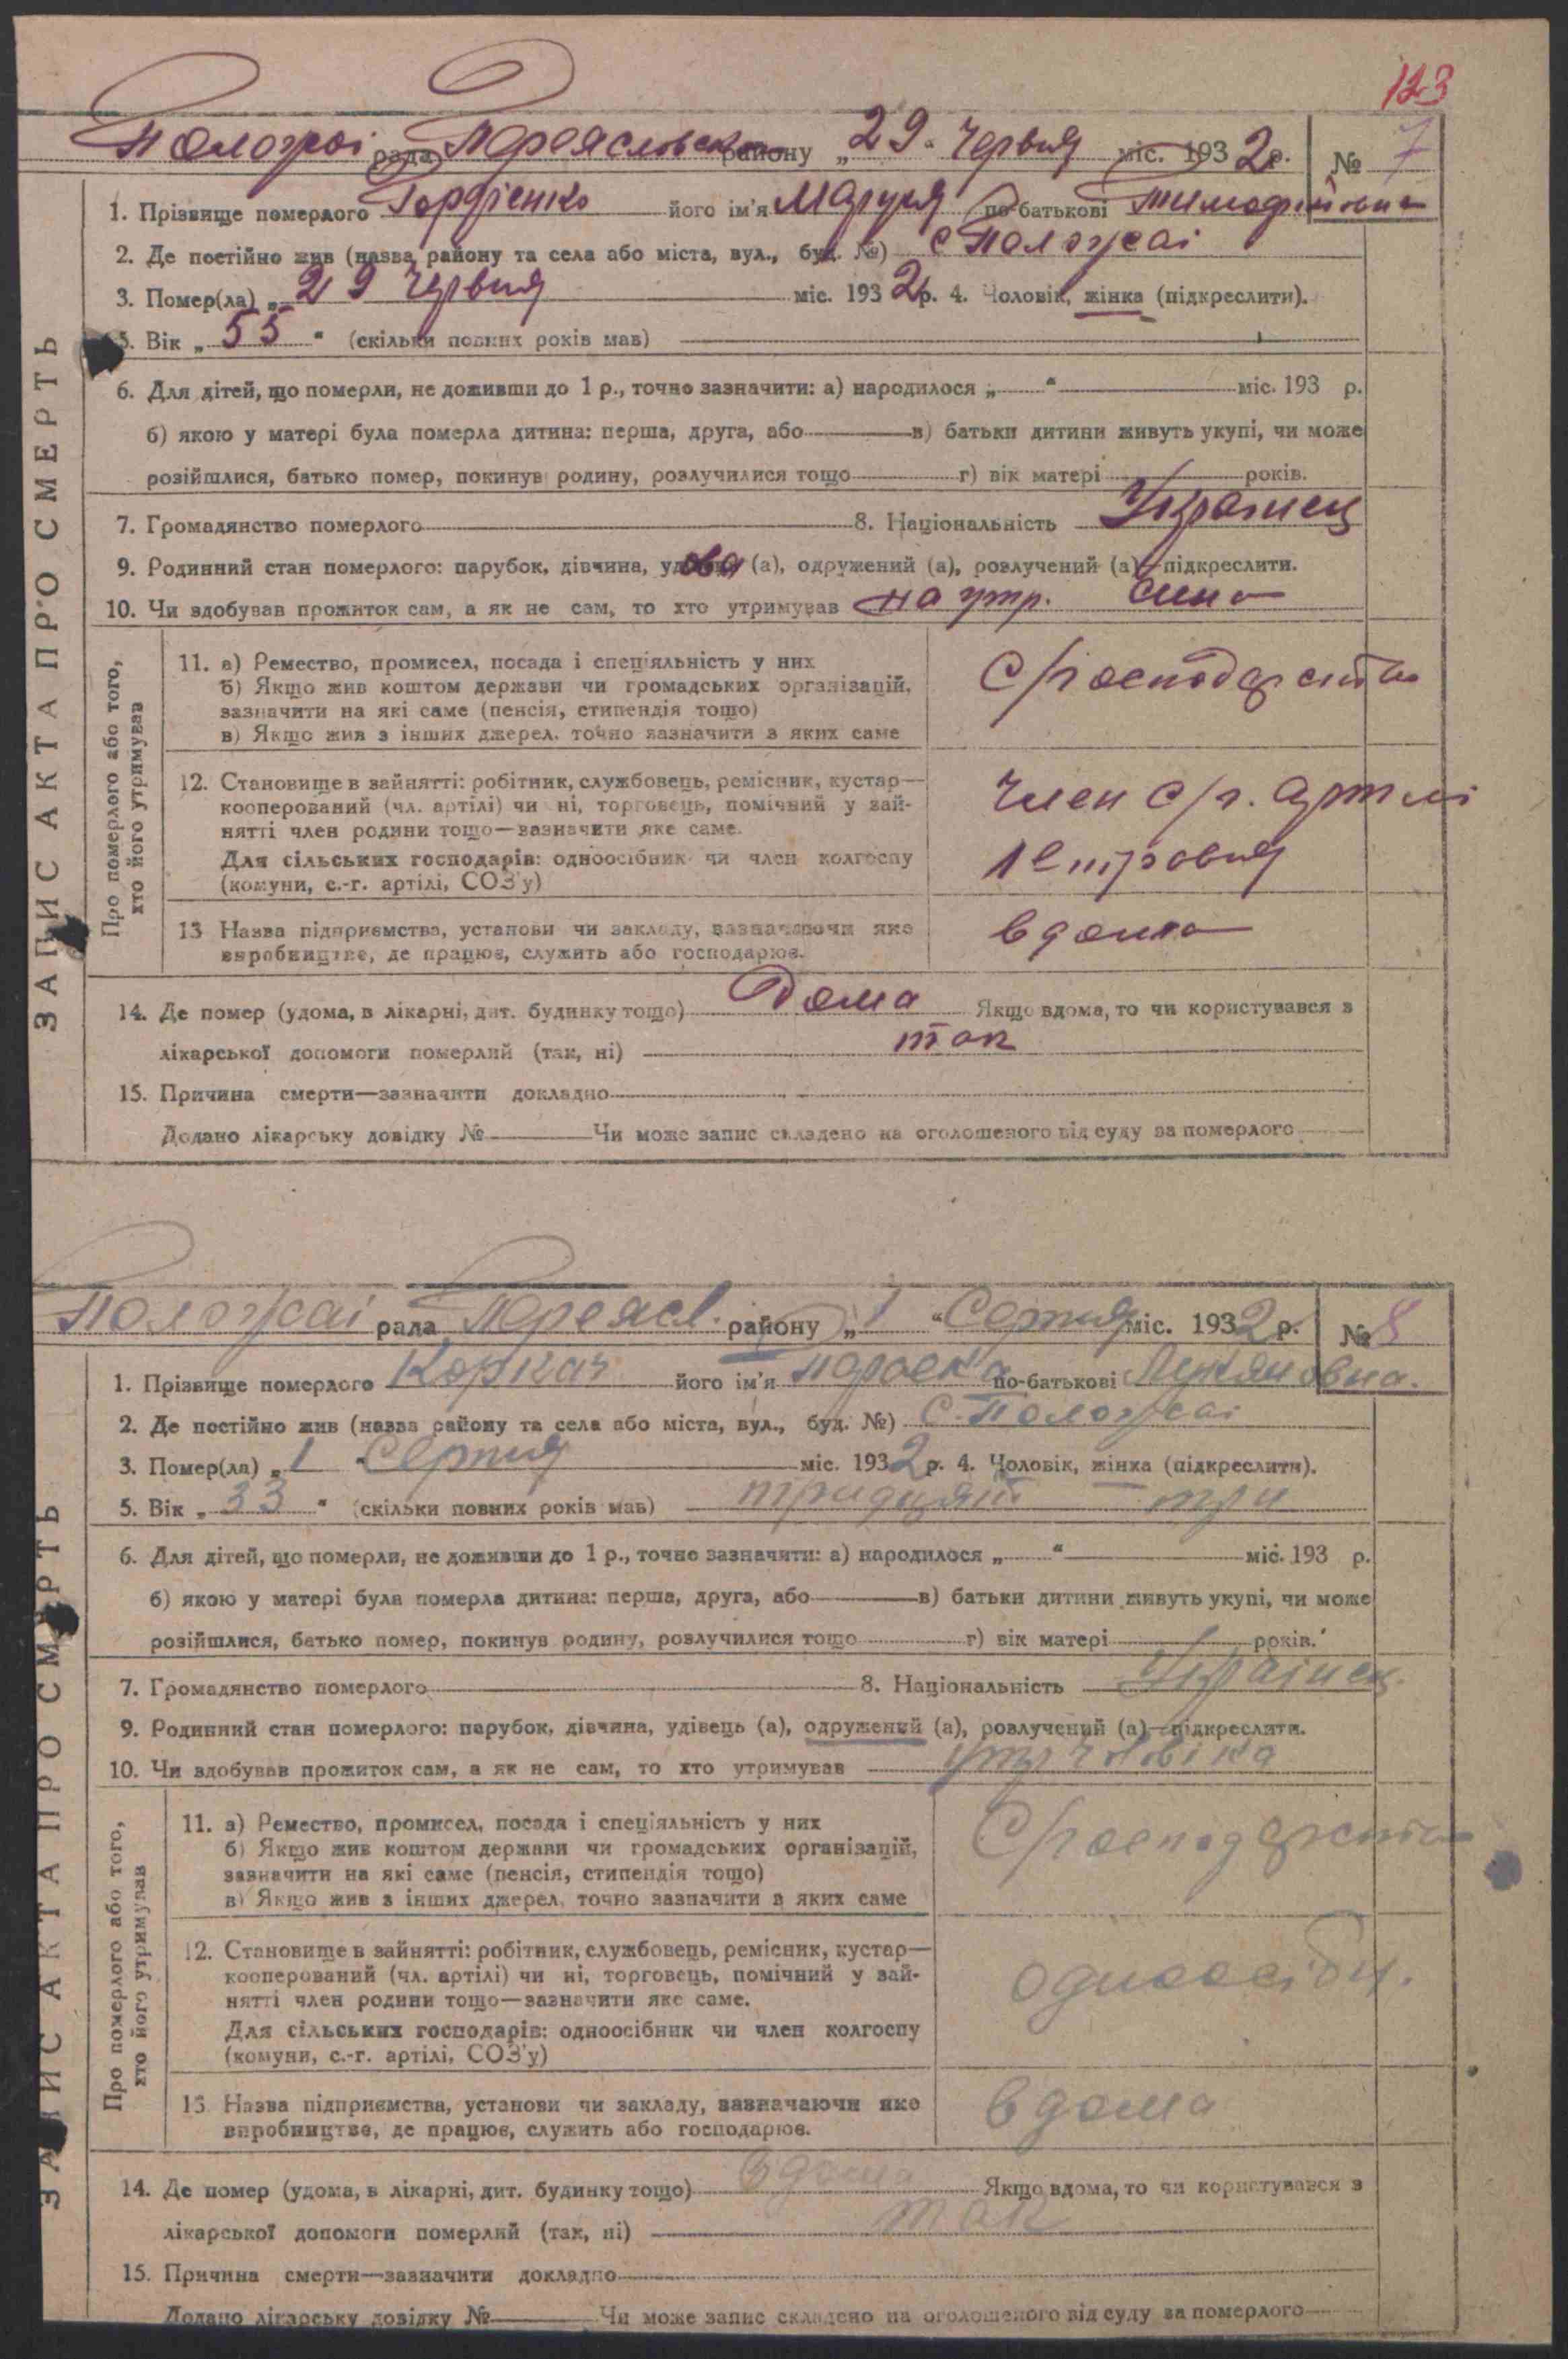 123
Положаї рада Переясловськ району „29“ Червня міс. 1932 р. № 7
1. Прізвище померлого Гордієнко його ім'я Маруся по-батькові Тимофіївна
2. Де постійно жив (назва району та села або міста, вул., буд. №) с Положаї
3. Помер(ла) „29 Червня міс. 1932 р. 4. Чоловік, жінка (підкреслити).
5. Вік „55“ (скільки повних років мав)
6. Для дітей, що померли, не доживши до 1 р., точно зазначити: а) народилося „ “ міс. 193 р.
б) якою у матері була померла дитина: перша, друга, або в) батьки дитини живуть укупі, чи може
розійшлися, батько помер, покинув родину, розлучилися тощо г) вік матері років.
7. Громадянство померлого 8. Національність Українец
9. Родинний стан померлого: парубок, дівчина, удова (а), одружений (а), розлучений (а)—підкреслити.
10. Чи здобував прожиток сам, а як не сам, то хто утримував на утр. сина
ЗАПИС АКТА ПРО СМЕРТЬ
Про померлого або того, хто його утримував
11. а) Ремество, промисел, посада і спеціяльність у них
б) Якщо жив коштом держави чи громадських організацій,
зазначити на які саме (пенсія, стипендія тощо)
в) Якщо жив з інших джерел, точно зазначити з яких саме
С/господарство
12. Становище в зайнятті: робітник, службовець, ремісник, кустар—
кооперований (чл. артілі) чи ні, торговець, помічний у зай-
нятті член родини тощо—зазначити яке саме.
Для сільських господарів: одноосібник чи член колгоспу
(комуни, с.-г. артілі, СОЗ'у)
Член с/г. артілі
Петровья
13 Назва підприємства, установи чи закладу, зазначаючи яке
виробництво, де працює, служить або господарює.
вдома
14. Де помер (удома, в лікарні, дит. будинку тощо) Дома Якщо вдома, то чи користувався з
лікарської допомоги померлий (так, ні) так
15. Причина смерти—зазначити докладно
Додано лікарську довідку № Чи може запис складено на оголошеного від суду за померлого
Положаї рада Переясл. району „1“ Серпня міс. 1932 р. № 8
1. Прізвище померлого Коркач його ім'я Пароска по-батькові
2. Де постійно жив (назва району та села або міста, вул., буд. №) С. Положаї
3. Помер(ла) „1 Серпня міс. 1932 р. 4. Чоловік, жінка (підкреслити).
5. Вік „33“ (скільки повних років мав) тридцять три
6. Для дітей, що померли, не доживши до 1 р., точно зазначити: а) народилося „ “ міс. 193 р.
б) якою у матері була померла дитина: перша, друга, або в) батьки дитини живуть укупі, чи може
розійшлися, батько помер, покинув родину, розлучилися тощо г) вік матері років.
7. Громадянство померлого 8. Національність Українец.
9. Родинний стан померлого: парубок, дівчина, удівець (а), одружений (а), розлучений (а)—підкреслити.
10. Чи здобував прожиток сам, а як не сам, то хто утримував утр чоловіка
ЗАПИС АКТА ПРО СМЕРТЬ
Про померлого або того, хто його утримував
11. а) Ремество, промисел, посада і спеціяльність у них
б) Якщо жив коштом держави чи громадських організацій,
зазначити на які саме (пенсія, стипендія тощо)
в) Якщо жив з інших джерел, точно зазначити з яких саме
С/господарство
12. Становище в зайнятті: робітник, службовець, ремісник, кустар—
кооперований (чл. артілі) чи ні, торговець, помічний у зай-
нятті член родини тощо—зазначити яке саме.
Для сільських господарів: одноосібник чи член колгоспу
(комуни, с.-г. артілі, СОЗ'у)
одноосібн.
13 Назва підприємства, установи чи закладу, зазначаючи яке
виробництво, де працює, служить або господарює.
вдома
14. Де помер (удома, в лікарні, дит. будинку тощо) вдома Якщо вдома, то чи користувався з
лікарської допомоги померлий (так, ні) так
15. Причина смерти—зазначити докладно
Додано лікарську довідку № Чи може запис складено на оголошеного від суду за померлого